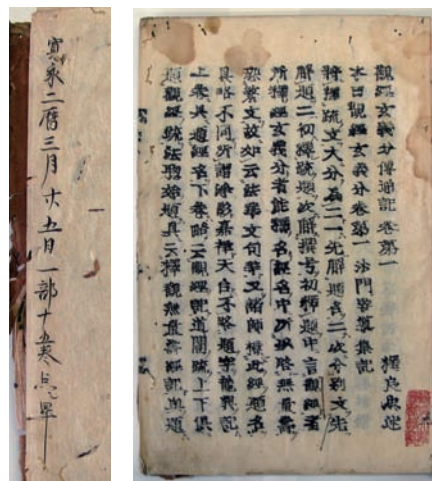 寛永二暦三月廿五日一部十五巻点畢
觀經玄義分傳通記卷第一 釋良忠述
本曰觀經玄義分卷第一 沙門善導集記
將釋疏文大分爲二一先解題名二後分別文先
解題二初釋疏題次解撰号初釋題中言觀經者
所釋經玄義分者能釋名經名中所以略無量壽
恐繁文故如云法華文句等又諸師標此經題名
具略不同所謂淨影嘉祥天台不略題字龍興記
上卷具題經名下卷略云觀經記道誾疏上下俱
題觀經疏法聡始題具云釋觀無量壽經記與題